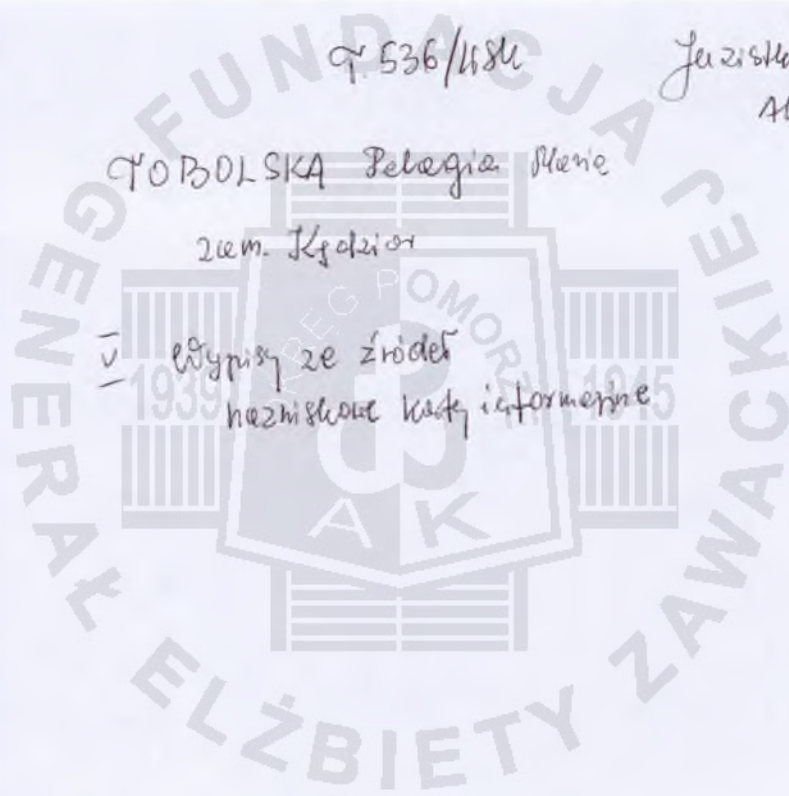 T. 536/WSK
TOBOLSKA Pelagia Maria
zam. Kędzior
V Wypisy ze źródeł
nazwiskowe karty informacyjne
FUNDACJA GENERAŁ ELŻBIETY ZAWACKIEJ
OKRĘG POMORZE
1939 1945
AK